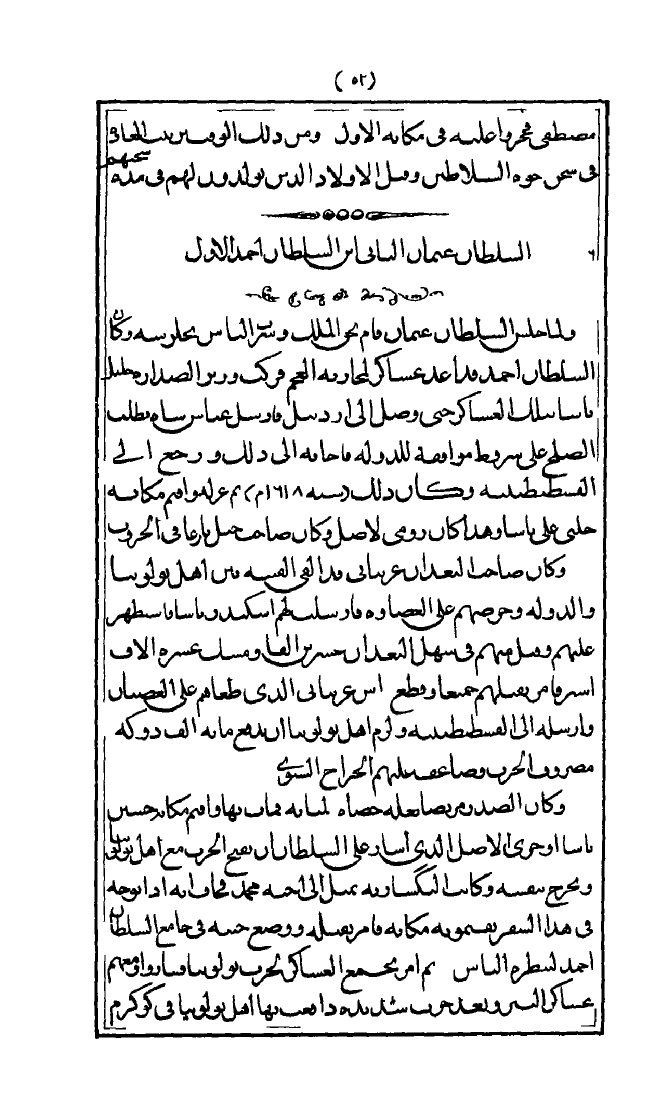 (٥٢)
مصطفى فحجروا عليه فى مكانه الاول ومن ذلك اليوم
فى سجن جوه السلاطين وقتل الاولاد الذين يولدون لهم فى مدة سجنهم
السلطان عثمان الثانى ابن السلطان احمد الاول
٦
ولما جلس السلطان عثمان قام بحق الملك الناس بجلوسه وكان
السلطان احمد قد اعد عساكر لمحاربه العجم فركب وزير الصداره خليل
باشا بتلك العساكر حتى وصل الى اردبيل فارسل عباس شاه يطلب
الصلح على شروط موافقة للدوله فاجابه الى ذلك ورجع الى
القسطنطينيه وكان ذلك (سنه ١٦١٨م) ثم عزله واقيم مكانه
جلبى على باشا وهذا كان رومى الاصل وكان صاحب حيل بارعا فى الحروب
وكان صاحب البغدان غرتيانى قد القى الفتنه بين اهل بولونيا
والدوله وحرضهم على العصاوه فارسلت لهم اسكندر باشا فاستظهر
عليهم وقتل منهم فى سهل البغدان عشرين الفا ومسك عشره الاف
اسير فامر بقتلهم جميعا وقطع راس غرتيانى الذى طغاهم على العصيان
وارسله الى القسطنطينيه ولزم اهل بولونيا ان يدفع مايه الف دوكه
مصروف الحرب وضاعف عليهم الخراج السنوى
وكان الصدر مريضا بعله حصاه لمثانه فمات بها واقيم مكانه حسين
باشا اوخرى الاصل الذى اشار على السلطان ان يفتح الحرب مع اهل بولونيا
ويخرج بنفسه وكانت الينكشاريه تميل الى اخيه محمد فخاف انه اذا توجه
فى هذا السفر يقيمونه مكانه فامر بقتله ووضع جثته فى جامع السلطان
احمد لتنظره الناس ثم امر بجمع العساكر لحرب بولونيا فساروا ومعهم
عساكر التتر وبعد حرب شديده دافعت بها اهل بولونيا فى كوكرم